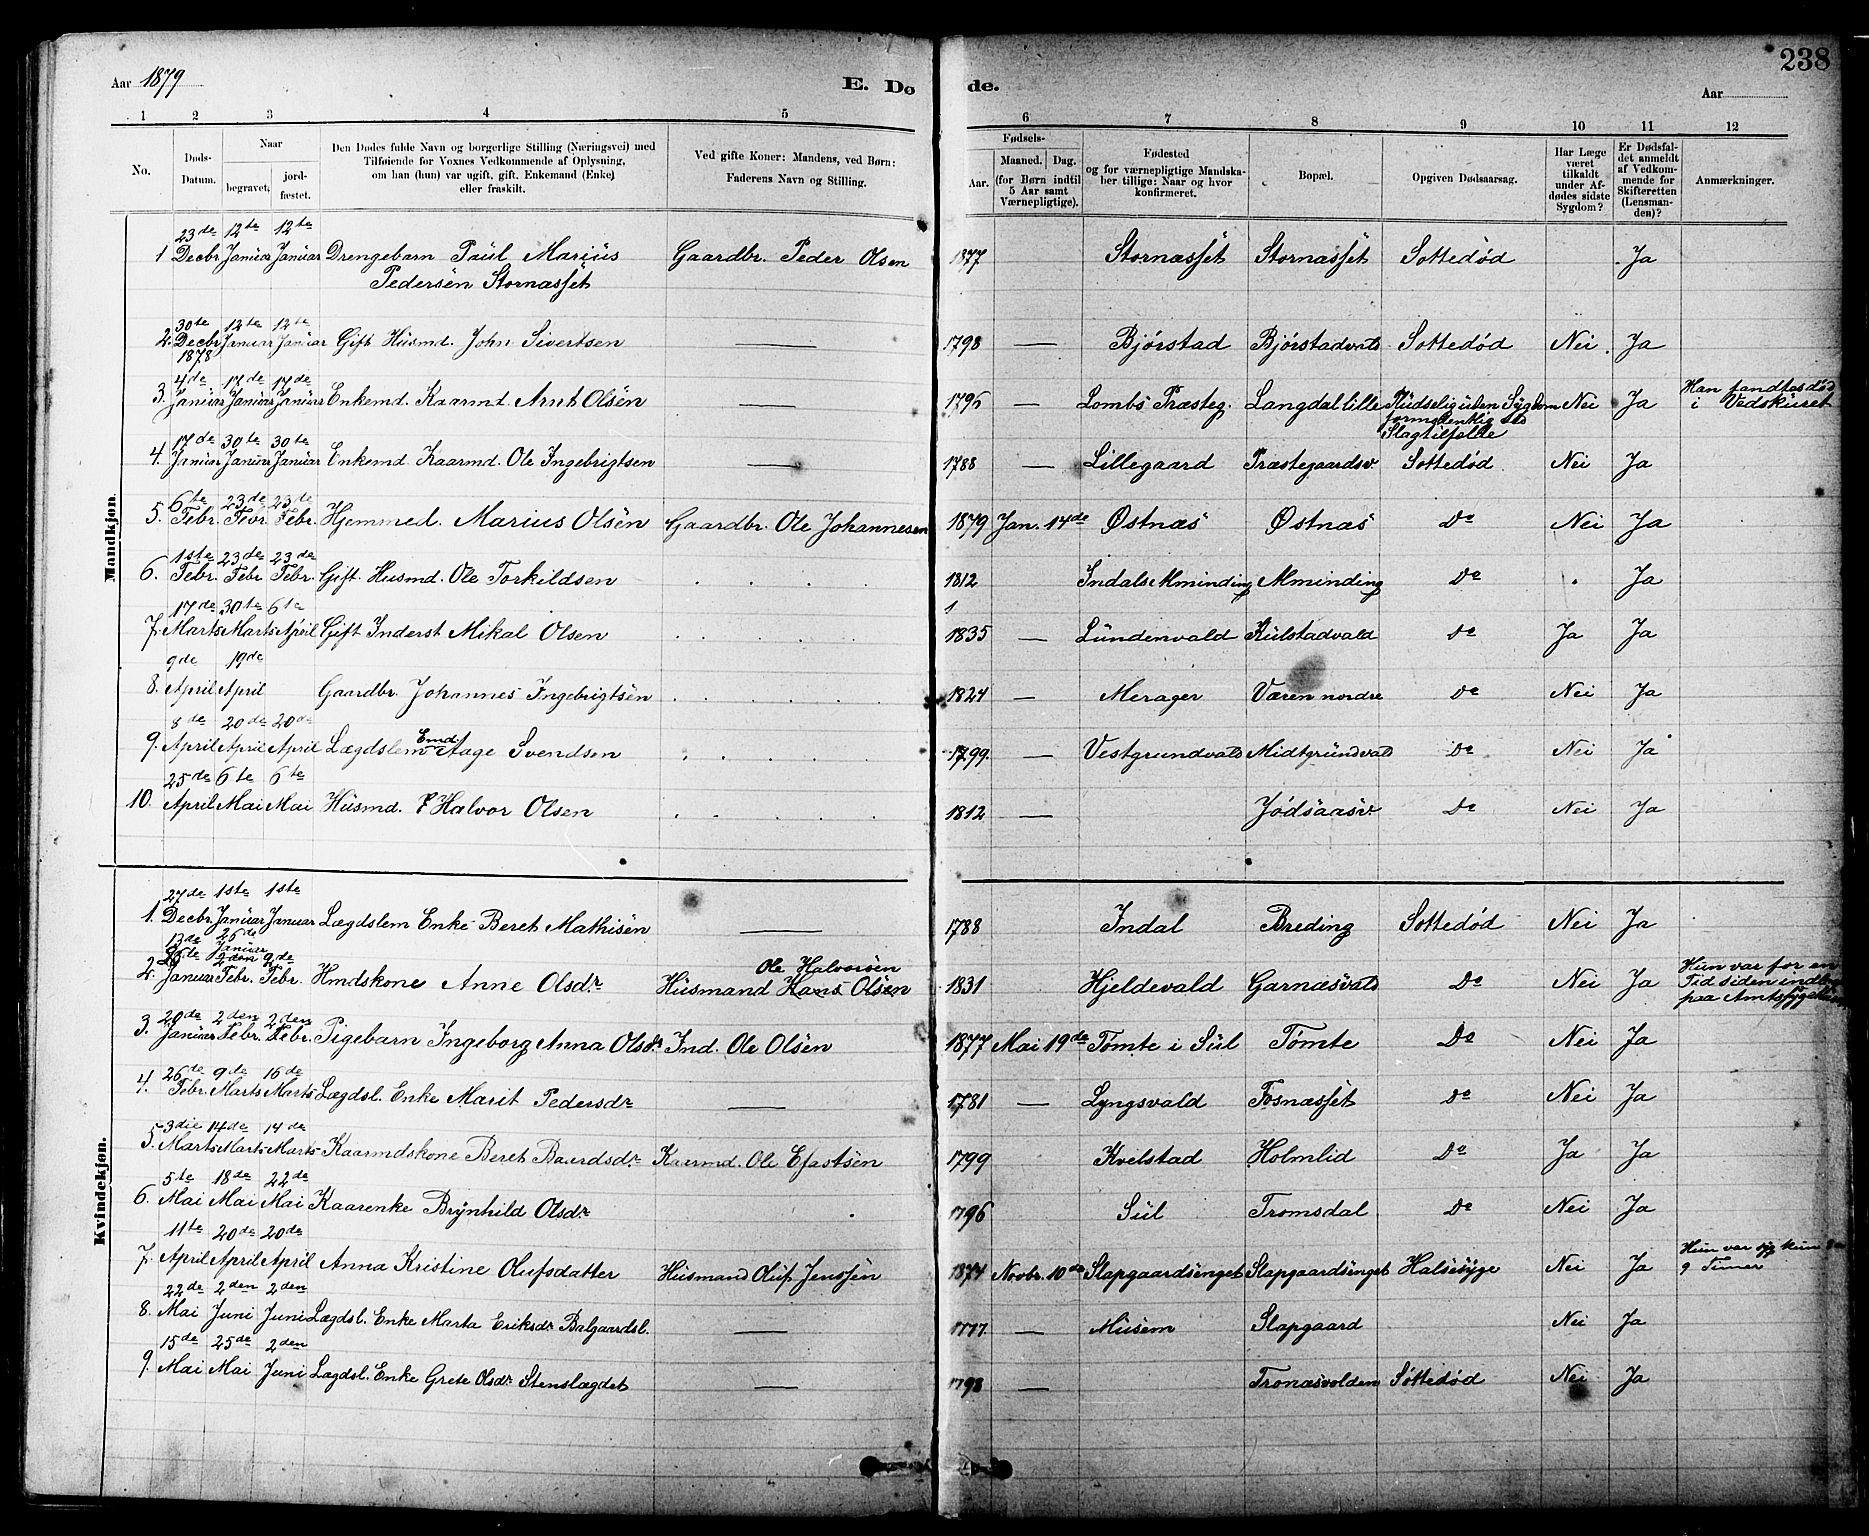 Aar 1879
E. Dø
de.
238
Aar
1 2 3 4 5 6 7 8 9 10 11 12
No.
Døds-Datum.
Naar
begravet.
jord-fæstet.
Den Dødes fulde Navn og borgerlige Stilling (Næringsvei) med
Tilføiende for Voxnes Vedkommende af Oplysning,
om han (hun) var ugift, gift, Enkemand (Enke)
eller fraskilt.
Ved gifte Koner: Mandens, ved Børn:
Faderens Navn og Stilling.
Fødsels-
Aar.
Maaned. Dag.
(for Børn indtil
5 Aar samt
Værnepligtige).
Fødested
og for værnepligtige Mandska-
ber tillige: Naar og hvor
konfirmeret.
Bopæl.
Opgiven Dødsaarsag.
Har Læge
været
tilkaldt
under Af-
dødes sidste
Sygdom?
Er Dødsfal-
det anmeldt
af Vedkom-
mende for
Skifteretten
(Lensman-
den)?
Anmærkninger.
Mandkjøn.
23de 12te 12te
1 Decbr Januar Januar Drengebarn Paul Marius Gaardbr. Peder Olsen 1877 Stornæsset Stornæsset Sottedød Ja
Pedersen Stornæsset
30te 12te 12te
2. Decbr Januar Januar Gift Husmd. John Sivertsen — 1798 — Bjørstad Bjørstadvald Sottedød Nei Ja
1878
4de 17de 17de
3. Januar Januar Januar Enkemd. Kaarmd Arnt Olsen 1795 — Lombs Præsteg. Langdal lille Pludselig uden Sygdom Nei Ja Han fandtes død
formodentlig
i Vedskuret
Slagtilfælde
17de 30te 30te
4. Januar Januar Januar Enkemd. Kaarmd. Ole Ingebrigtsen — 1788 — Lillegaard Præstegaardsv. Sottedød Nei Ja
6te 23de 23de
5. Febr. Febr. Febr. Hjemmed. Marius Olsen Gaardbr. Ole Johannesen 1879 Jan. 14de Østnæs Østnæs Do Nei Ja
1ste 23de 23de
6. Febr. Febr. Febr. Gift Husmd. Ole Torkildsen 1812 Indals Alminding Alminding Do Ja
17de 30te 6te
7. Marts Marts April Gift Inderst Mikal Olsen 1835 — Lundenvald Kulstadvald Do Ja Ja
9de 19de
8. April April Gaardbr. Johannes Ingebrigtsen 1824 — Merager Væren nordre Do Nei Ja
8de 20de 20de
9. April April April Lægdslem Emd. Aage Svendsen 1799. — Vestgrundvald Midtgrundvald Do Nei Ja
25de 6te 6te
10. April Mai Mai Husmd. Halvor Olsen 1812 — Jødsaasv. Do Nei Ja
Kvindekjøn.
27de 1ste 1ste
1. Decbr. Januar Januar Lægdslem Enke Beret Mathisen — 1788 Indal Breding Sottedød Nei Ja
13de 26de
Januar
2den 9de Ole Halvorsen
2. Januar Febr. Febr. Hmdskone Anne Olsdr Husmand Hans Olsen 1831 Hjeldevald Garnæsvald Do Nei Ja Hun var for en
Tid siden indlagt
paa Amtssygehuset
20de 2den 2den
3. Januar Febr. Febr. Pigebarn Ingeborg Anna Olsdr Ind. Ole Olsen 1877 Mai 19de Tømte i Sul Tømte Do Nei Ja
26de 9de 16de
4. Febr. Marts Marts Lægdsl. Enke Marit Pedersdr — 1781 — Lyngsvald Fosnæsset Do Nei Ja
3die 14de 14de
5. Marts Marts Marts Kaarmdskone Beret Baardsdr. Kaarmd. Ole Efastsen 1799 Kvelstad Holmlid Do Ja Ja
5te 18de 22de
6. Mai Mai Mai Kaarenke Brynhild Olsdr 1796 Sul Tromsdal Do Nei Ja
11te 20de 20de
7. April April April Anna Kristine Olufsdatter Husmand Oluf Jenssen 1874 Novbr. 10de Slapgaardsenget Slapgaardsenget Halsesyge Nei Ja Hun var syg kun
9 Timer
22de 2den 2den
8. Mai Juni Juni Lægdsl. Enke Marta Eriksdr Balgaardsl. — 1777. — Musem Slapgaard Nei Ja
15de 25de 2den
9. Mai Mai Juni Lægdsl. Enke Grete Olsdr Stenslægdet — 1798 — Tronæsvolden Sottedød Nei Ja